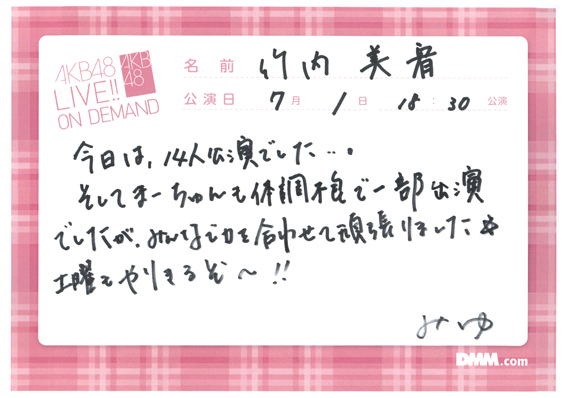 AKB48
LIVE!!
ON DEMAND
AKB
48
名前 竹内美宥
公演日 7月 1日 18:30 公演
今日は、14人公演でした…。
そしてまーちゅんも体調不良で一部出演
でしたが、みんなで力を合わせて頑張りました☆
土曜もやりきるぞ〜!!
みゆ
DMM.com